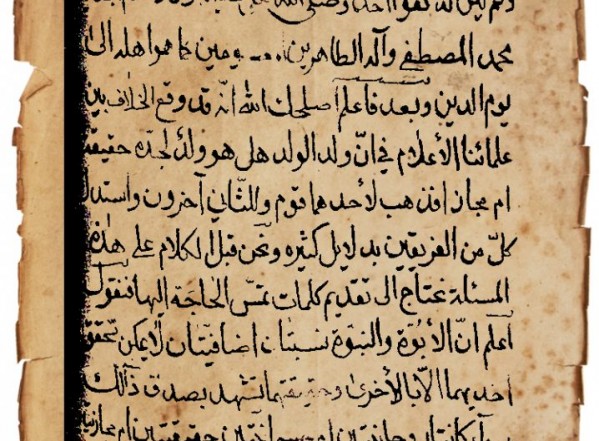 محمد المصطفى وآله الطاهرين ومين كما هو اهله الى
يوم الدين وبعد فاعلم أصلحك الله انّه قد وقع الخلاف بين
علمائنا الأعلام في انّ ولد الولد هل هو ولد لجدّه حقيقة
ام مجاز افذهب لأحدهما قوم وللثّاني آخرون واستدل
كلّ من الفريقين بدلايل كثيره ونحن قبل الكلام على هذه
المسئلة نحتاج الى تقديم كلمات تمسّ الحاجة إليها فنقول
اعلم انّ الأبوّة والبنوّة نسبتان اضافيّتان لا يمكن تحقق
احديهما الّا بالأخرى وحقيقتهما تشهد بصدق ذالك